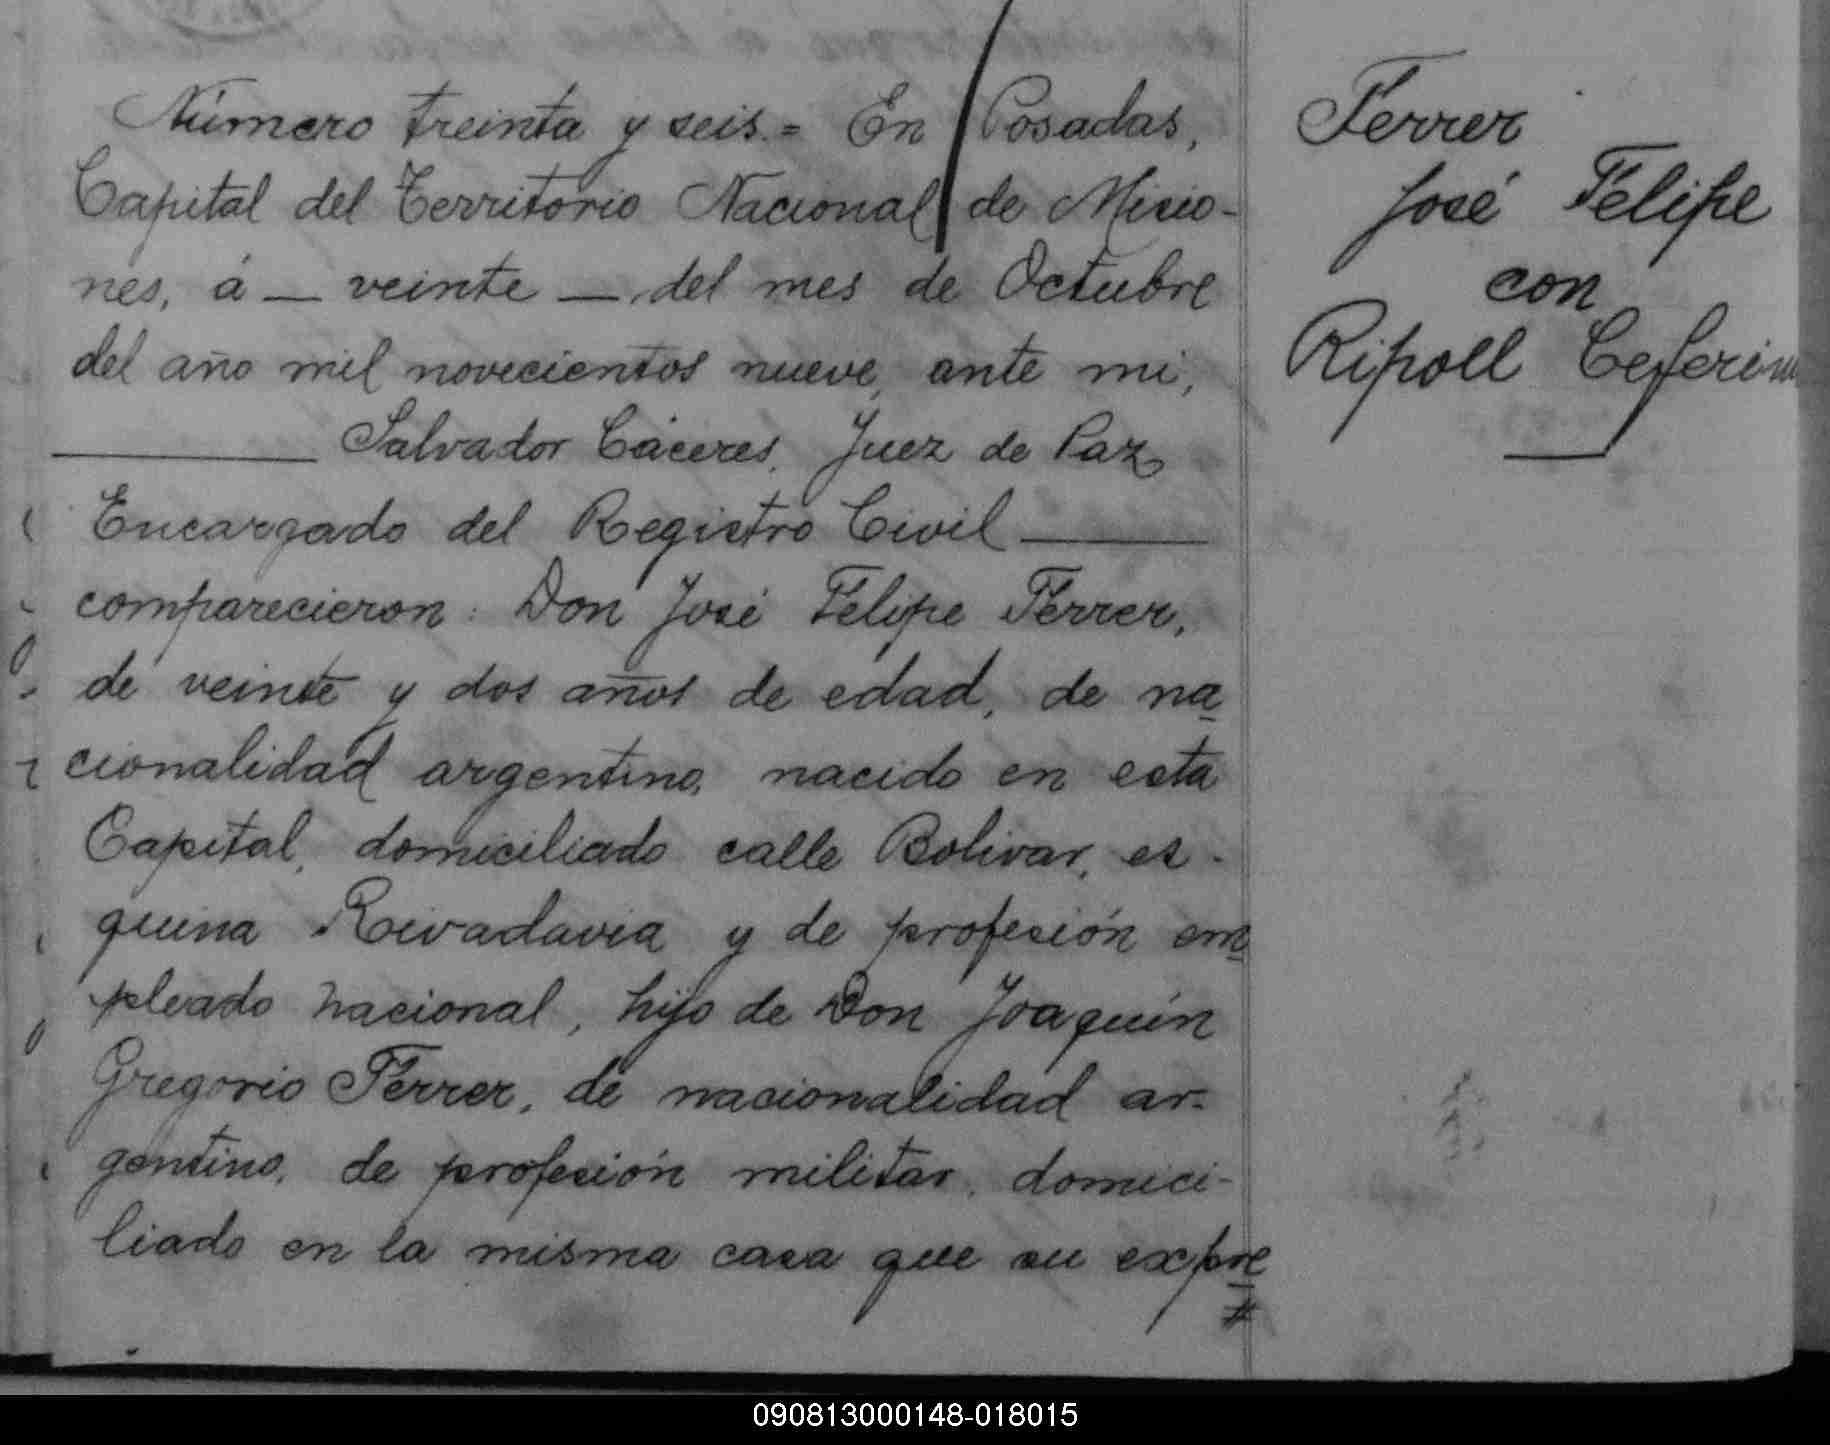 Número treinta y seis.= En Posadas,
Capital del Territorio Nacional de Misio-
nes, á — veinte — del mes de Octubre
del año mil novecientos nueve, ante mi,
Salvador Cáceres, Juez de Paz
Encargado del Registro Civil
comparecieron: Don José Felipe Ferrer,
de veinte y dos años de edad, de na
cionalidad argentino, nacido en esta
Capital, domiciliado calle Bolivar, es-
quina Rivadavia y de profesión em
pleado nacional, hijo de Don Joaquín
Gregorio Ferrer, de nacionalidad ar-
gentino, de profesión militar, domici-
liado en la misma casa que su expre
#
Ferrer
José Felipe
con
Ripoll
090813000148-018015